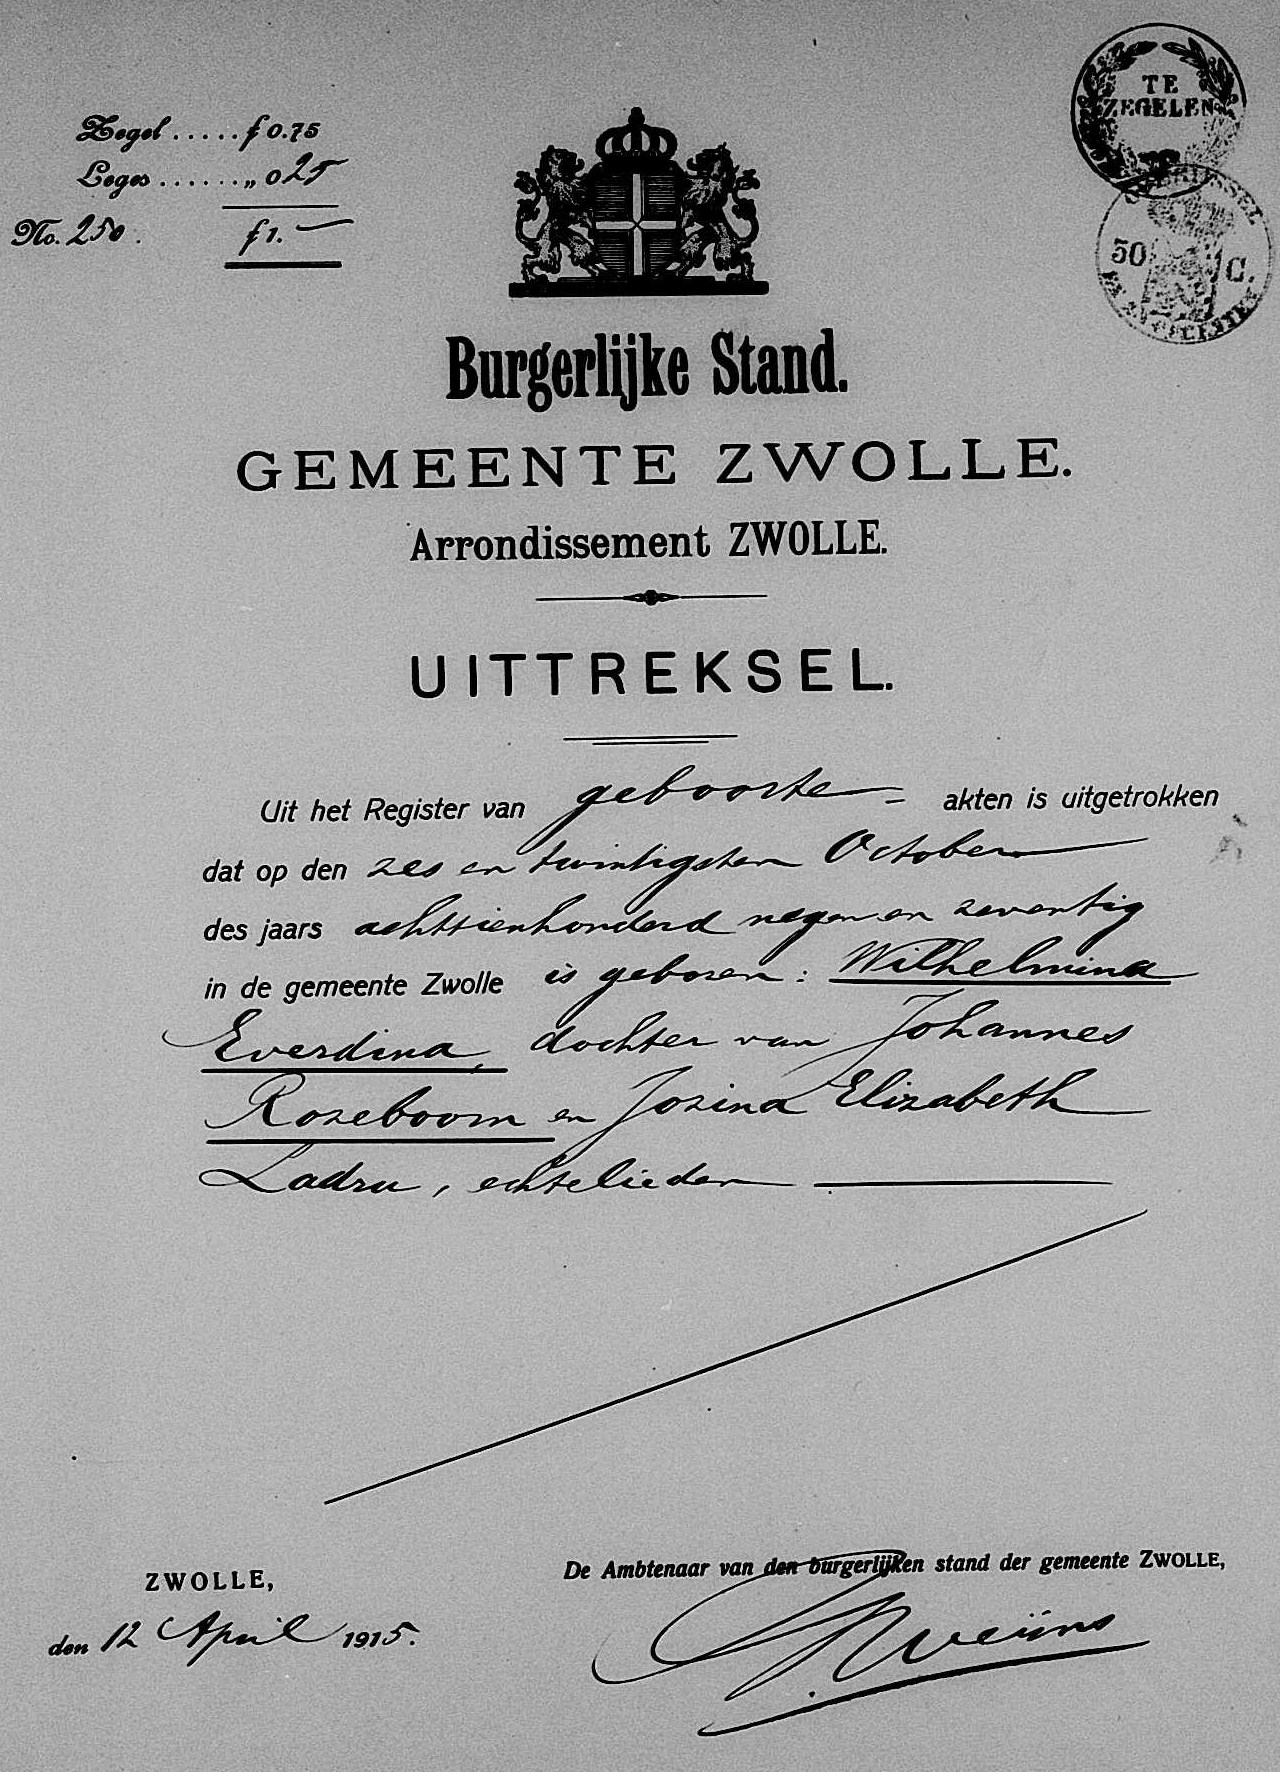 Zegel ..... f 0.75
Leges ...... „ 0 25
No. 250. f 1.—
TE
ZEGELEN
OVERIJSSEL
50 C.
Burgerlijke Stand.
GEMEENTE ZWOLLE.
Arrondissement ZWOLLE.
UITTREKSEL.
Uit het Register van geboorte- akten is uitgetrokken
dat op den zes en twintigsten October
des jaars achttienhonderd negen en zeventig
in de gemeente Zwolle is geboren: Wilhelmina
Everdina, dochter van Johannes
Rozeboom en Jozina Elizabeth
Ladru, echtelieden
De Ambtenaar van den burgerlijken stand der gemeente ZWOLLE,
ZWOLLE,
den 12 April 1915.